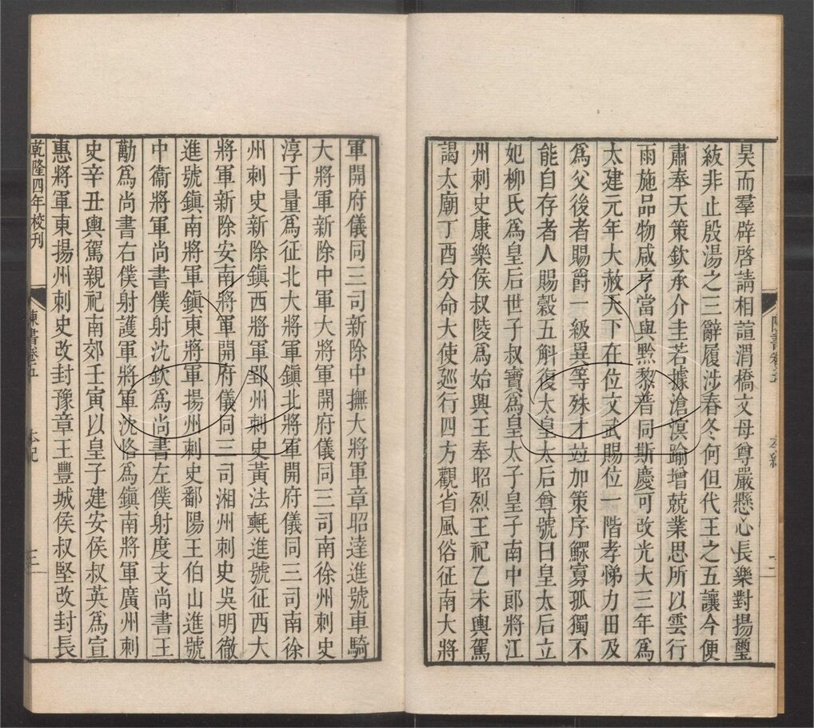 昊而羣辟啓請相諠渭橋文母尊嚴懸心長樂對揚璽
紱非止殷湯之三辭履涉春冬何但代王之五讓今便
肅奉天策欽承介圭若據滄溟踰增兢業思所以雲行
雨施品物咸亨當與黔黎普同斯慶可改光大三年爲
太建元年大赦天下在位文武賜位一階孝悌力田及
爲父後者賜爵一級異等殊才竝加策序鰥寡孤獨不
能自存者人賜穀五斛復太皇太后尊號曰皇太后立
妃柳氏爲皇后世子叔寶爲皇太子皇子南中郎將江
州刺史康樂侯叔陵爲始興王奉昭烈王祀乙未輿駕
謁太廟丁酉分命大使廵行四方觀省風俗征南大將
軍開府儀同三司新除中撫大將軍章昭達進號車騎
大將軍新除中軍大將軍開府儀同三司南徐州刺史
淳于量爲征北大將軍鎭北將軍開府儀同三司南徐
州刺史新除鎭西將軍郢州刺史黃法𣰰進號征西大
將軍新除安南將軍開府儀同三司湘州刺史吳明徹
進號鎭南將軍鎭東將軍揚州刺史鄱陽王伯山進號
中衞將軍尚書僕射沈欽爲尚書左僕射度支尚書王
勱爲尚書右僕射護軍將軍沈恪爲鎭南將軍廣州刺
史辛丑輿駕親祀南郊壬寅以皇子建安侯叔英爲宣
惠將軍東揚州刺史改封豫章王豐城侯叔堅改封長
乾隆四年校刊
陳書卷五
本紀